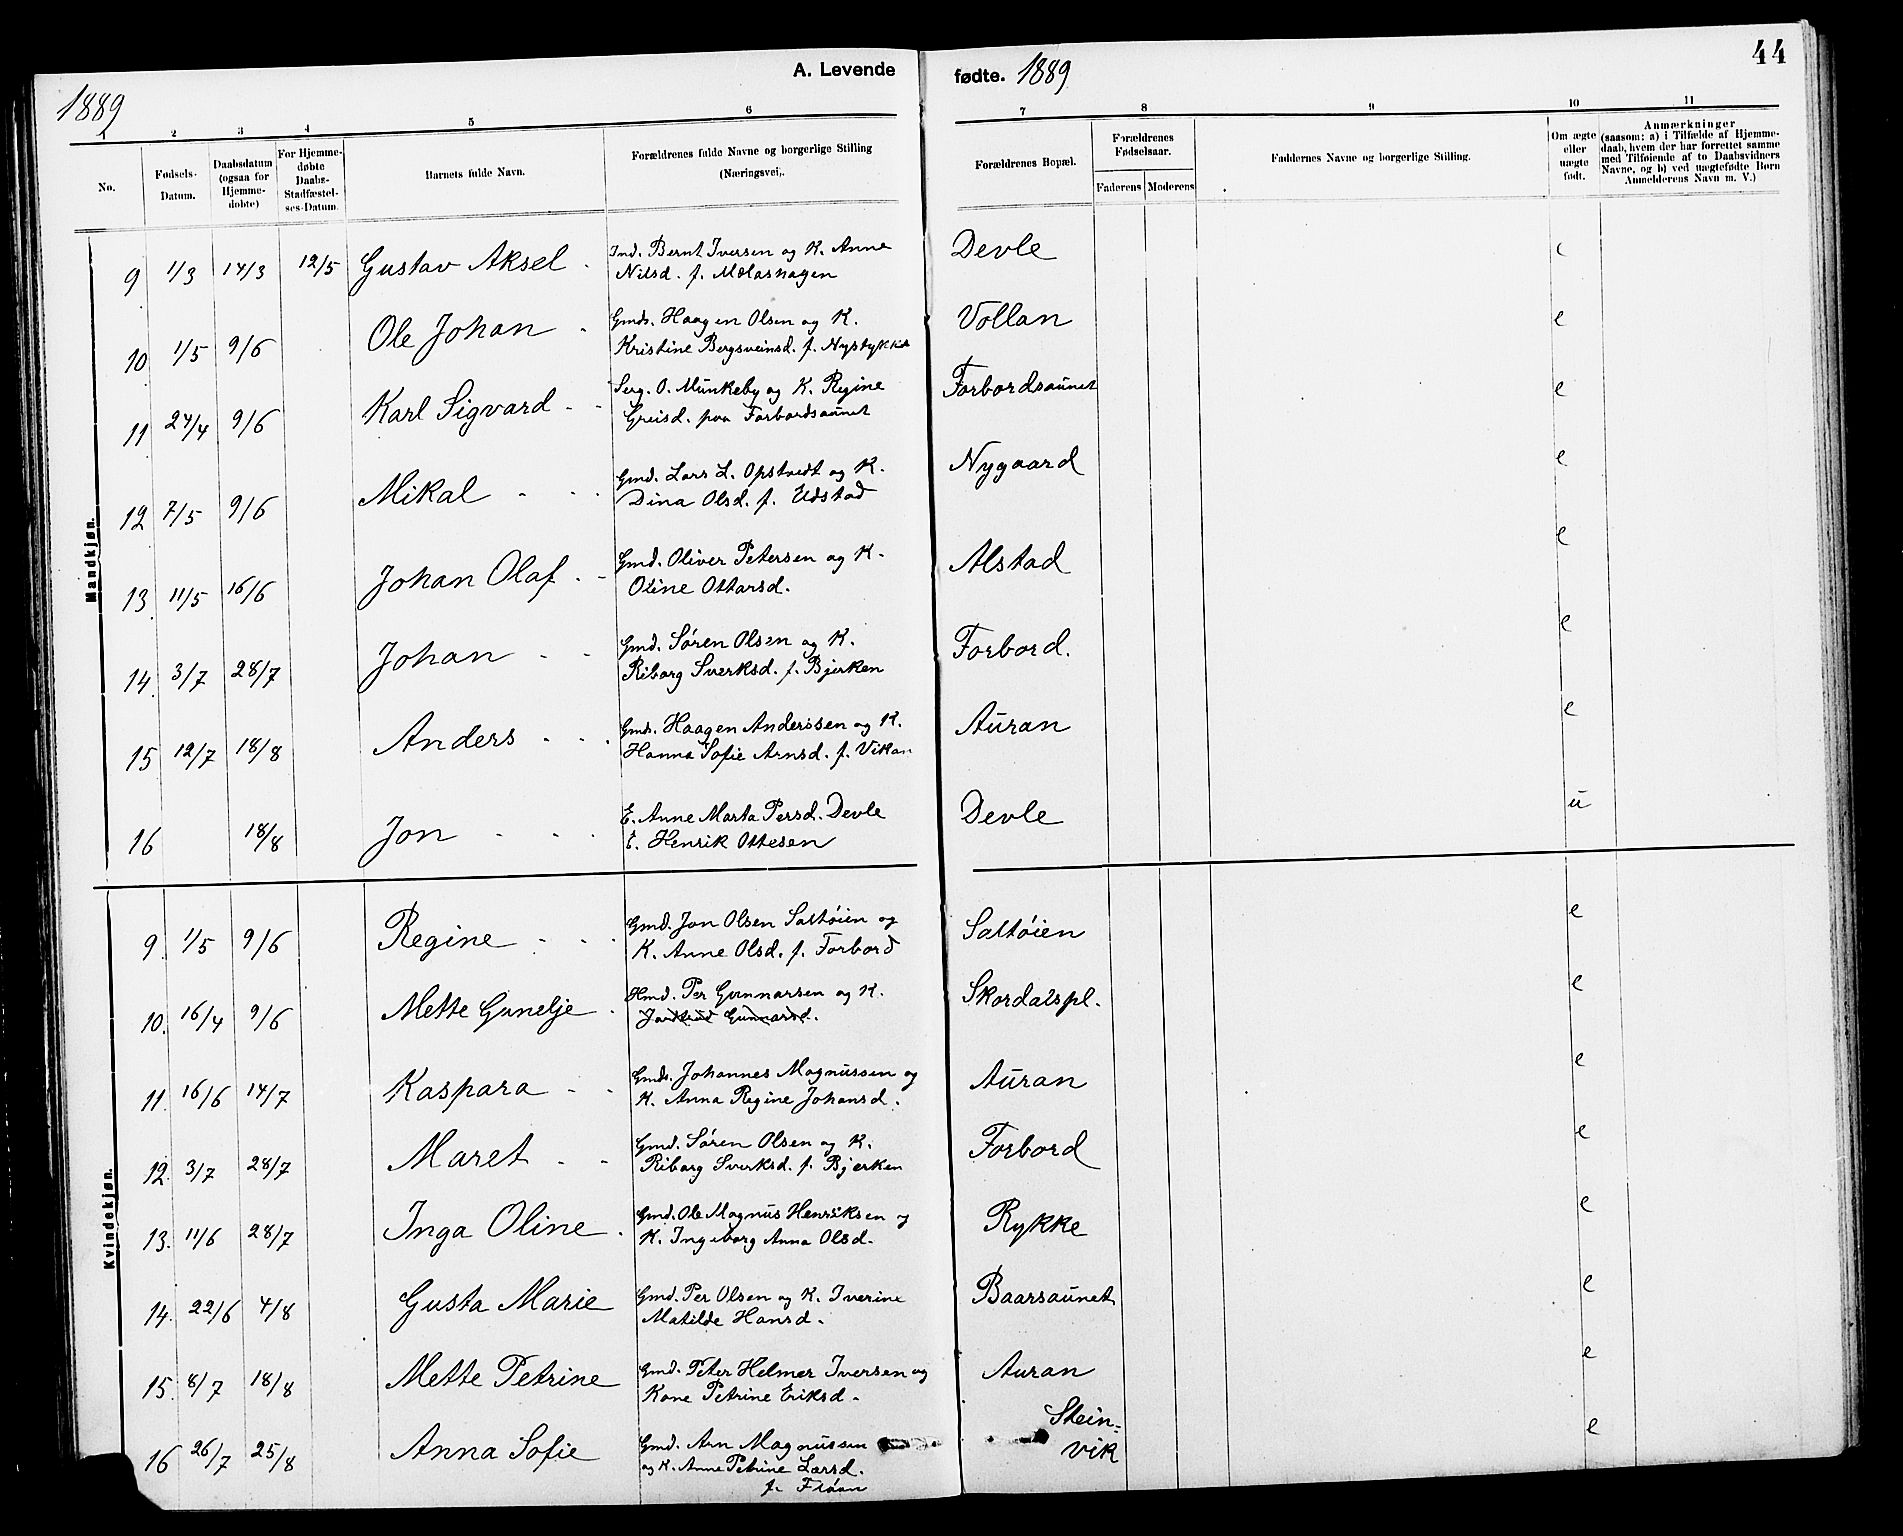 44
A. Levende fødte. 1889
1889
1 2 3 4 5 6 7 8 9 10 11
No.
Fødsels-Datum.
Daabsdatum (ogsaa for Hjemme-døbte)
For Hjemme-døbte Daabs-Stadfæstel-ses-Datum.
Barnets fulde Navn.
Forældrenes fulde Navne og borgerlige Stilling (Næringsvei).
Forældrenes Bopæl.
Forældrenes Fødselsaar.
Faderens Moderens
Faddernes Navne og borgerlige Stilling.
Om ægte eller uægte født.
Anmærkninger
(saasom: a) i Tilfælde af Hjemme-
daab, hvem der har forrettet samme
med Tilføiende af to Daabsvidners
Navne, og b) ved uægtefødte Børn
Anmelderens Navn m. V.)
Mandkjøn.
9 1/3 14/3 12/5 Gustav Aksel Ind. Bernt Iversen og K. Anne Devle
Nilsd. f. Molashagen
10 1/5 9/6 Ole Johan Gmd. Haagen Olsen og K. Vollan e
Kristine Bergsveinsd. f. Nystykket
11 24/4 9/6 Karl Sigvard Serg. O. Munkeby og K. Regine Forbordsaunet e
Greisd. paa Forbordsaunet
12 7/5 9/6 Mikal Gmd. Lars L. Opstvedt og K. Nygaard e
Dina Olsd. f. Udstad
13 11/5 16/6 Johan Olaf Gmd. Oliver Petersen og K. Alstad e
Oline Ottarsd.
14 3/7 28/7 Johan Gmd. Sören Olsen og K. Forbord. e
Riborg Sverksd. f. Bjerken
15 12/7 18/8 Anders Gmd. Haagen Anderssen og K. Auran e
Hanna Sofie Arnsd. f. Vikan
16 18/8 Jon E. Anne Marta Persd. Devle Devle u
E. Henrik Ottesen
Kvindekjøn.
9. 1/5 9/6 Regine Gmd. Jon Olsen Saltöien og Saltöien e
K. Anne Olsd. f. Forbord
10. 16/4 9/6 Mette Gunelje Hmd. Per Gunnarsen og K. Skordalspl. e
Gunnarsd.
11. 16/6 14/7 Kaspara Gmd. Johannes Magnussen og Auran e
K. Anna Regine Johansd.
12. 3/7 28/7 Maret Gmd. Sören Olsen og K. Forbord e
Riborg Sverksd. f. Bjerken
13. 11/6 28/7 Inga Oline Gmd. Ole Magnus Henriksen og Rykke e
K. Ingeborg Anna Olsd.
14. 22/6 4/8 Gusta Marie Gmd. Per Olsen og K. Iverine Baarsaunet e
Matilde Hansd.
15. 8/7 18/8 Mette Petrine Gmd. Peter Helmer Iversen og Auran e
Kone Petrine Eriksd.
16 26/7 25/8 Anna Sofie Gmd. Arn Magnussen Stein- e
og K. Anne Petrine Larsd. vik
f. Flöan